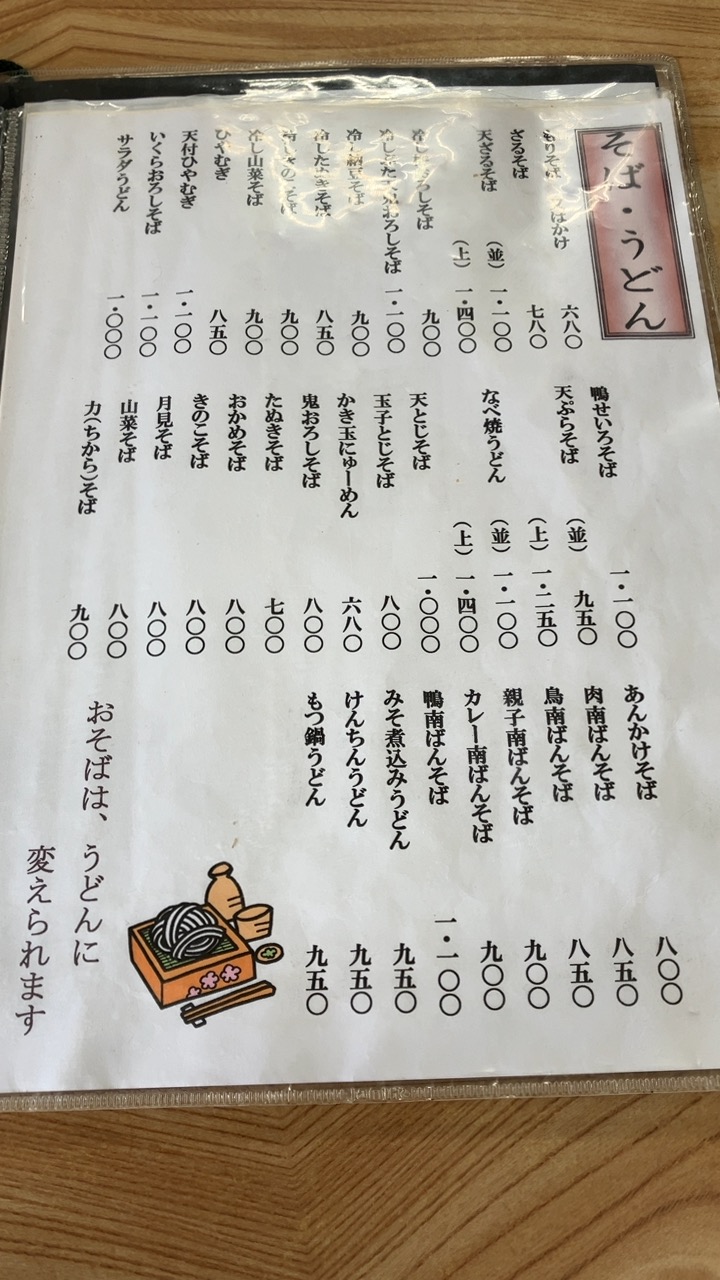 そば・うどん
もりそば 六八〇
ざるそば 七八〇
天ざるそば (並) 一・一〇〇
(上) 一・四〇〇
冷し おろしそば 九〇〇
冷し 鬼おろしそば 一・一〇〇
冷し納豆そば 九〇〇
冷したぬきそば 八五〇
冷しきのこそば 九〇〇
冷し山菜そば 九〇〇
ひやむぎ 八五〇
天付ひやむぎ 一・一〇〇
いくらおろしそば 一・一〇〇
サラダうどん 一・〇〇〇
鴨せいろそば 一・一〇〇
天ぷらそば (並) 九五〇
(上) 一・二五〇
なべ焼うどん (並) 一・一〇〇
(上) 一・四〇〇
天とじそば 一・〇〇〇
玉子とじそば 八〇〇
かき玉にゅーめん 六八〇
鬼おろしそば 八〇〇
たぬきそば 七〇〇
おかめそば 八〇〇
きのこそば 八〇〇
月見そば 八〇〇
山菜そば 八〇〇
力(ちから)そば 九〇〇
あんかけそば 八〇〇
肉南ばんそば 八五〇
鳥南ばんそば 八五〇
親子南ばんそば 九〇〇
カレー南ばんそば 九〇〇
鴨南ばんそば 一・一〇〇
みそ煮込みうどん 九五〇
けんちんうどん 九五〇
もつ鍋うどん 九五〇
おそばは、うどんに
変えられます